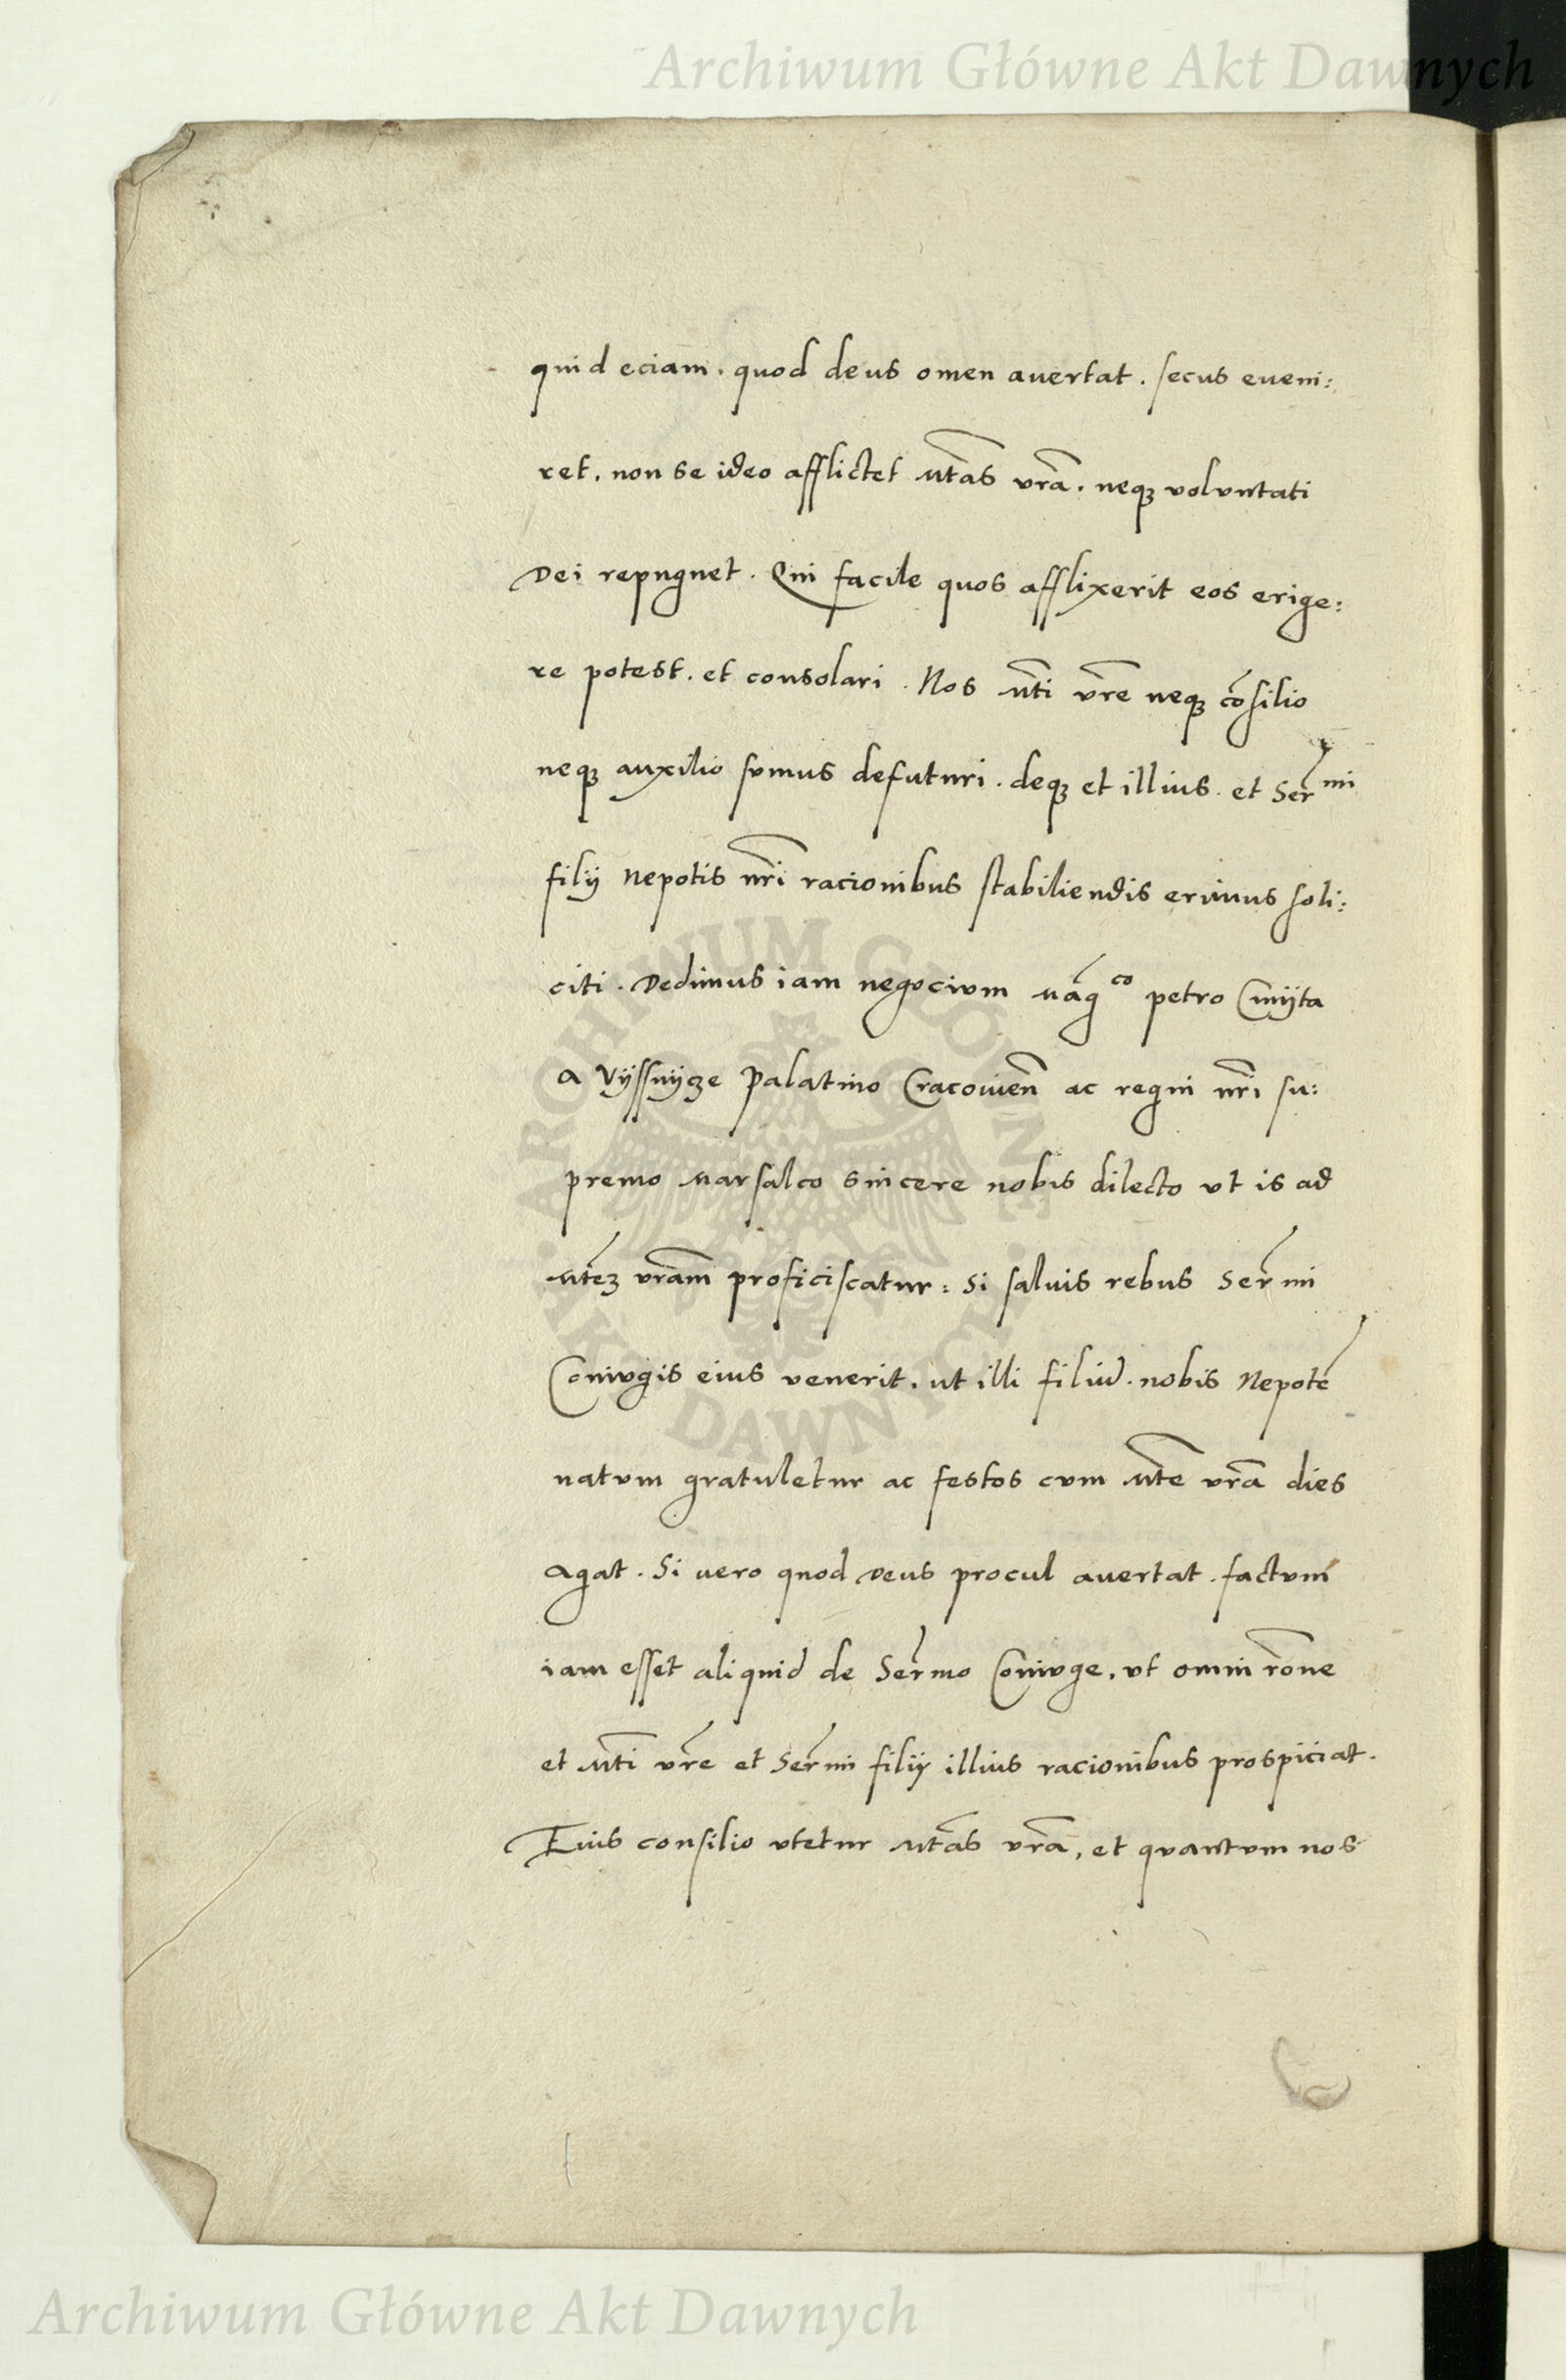 Archiwum Główne Akt Dawnych
quid eciam. quod deus omen auertat. secus eueni:
ret. non se ideo afflictet Mtas vra. neqꝫ voluntati
Dei repugnet. Qui facile quos afflixerit eos erige:
re potest. et consolari. Nos Mti vre neqꝫ cōsilio
neqꝫ auxilio sumus defuturi. deqꝫ et illius. et Sermi
filij Nepotis nri racionibus stabiliendis erimus soli:
citi. Dedimus iam negocium Magco petro Cmijta
A Vijssnijcze Palatino Cracouien ac regni nri su:
premo Marsalco sincere nobis dilecto vt is ad
Mtēꝫ vram proficiscatur: Si saluis rebus Sermi
Coniugis eius venerit. ut illi filiū. nobis Nepotē
natum gratuletur ac festos cum Mte vra dies
Agat. Si uero quod Deus procul auertat. factum
iam esset aliquid de Sermo Coniuge. vt omni rone
et Mti vre et Sermi filij illius racionibus prospiciat.
Eius consilio vtetur Mtas vra, et quantum nos
ARCHIWUM GŁÓWNE
AKT DAWNYCH
Archiwum Główne Akt Dawnych